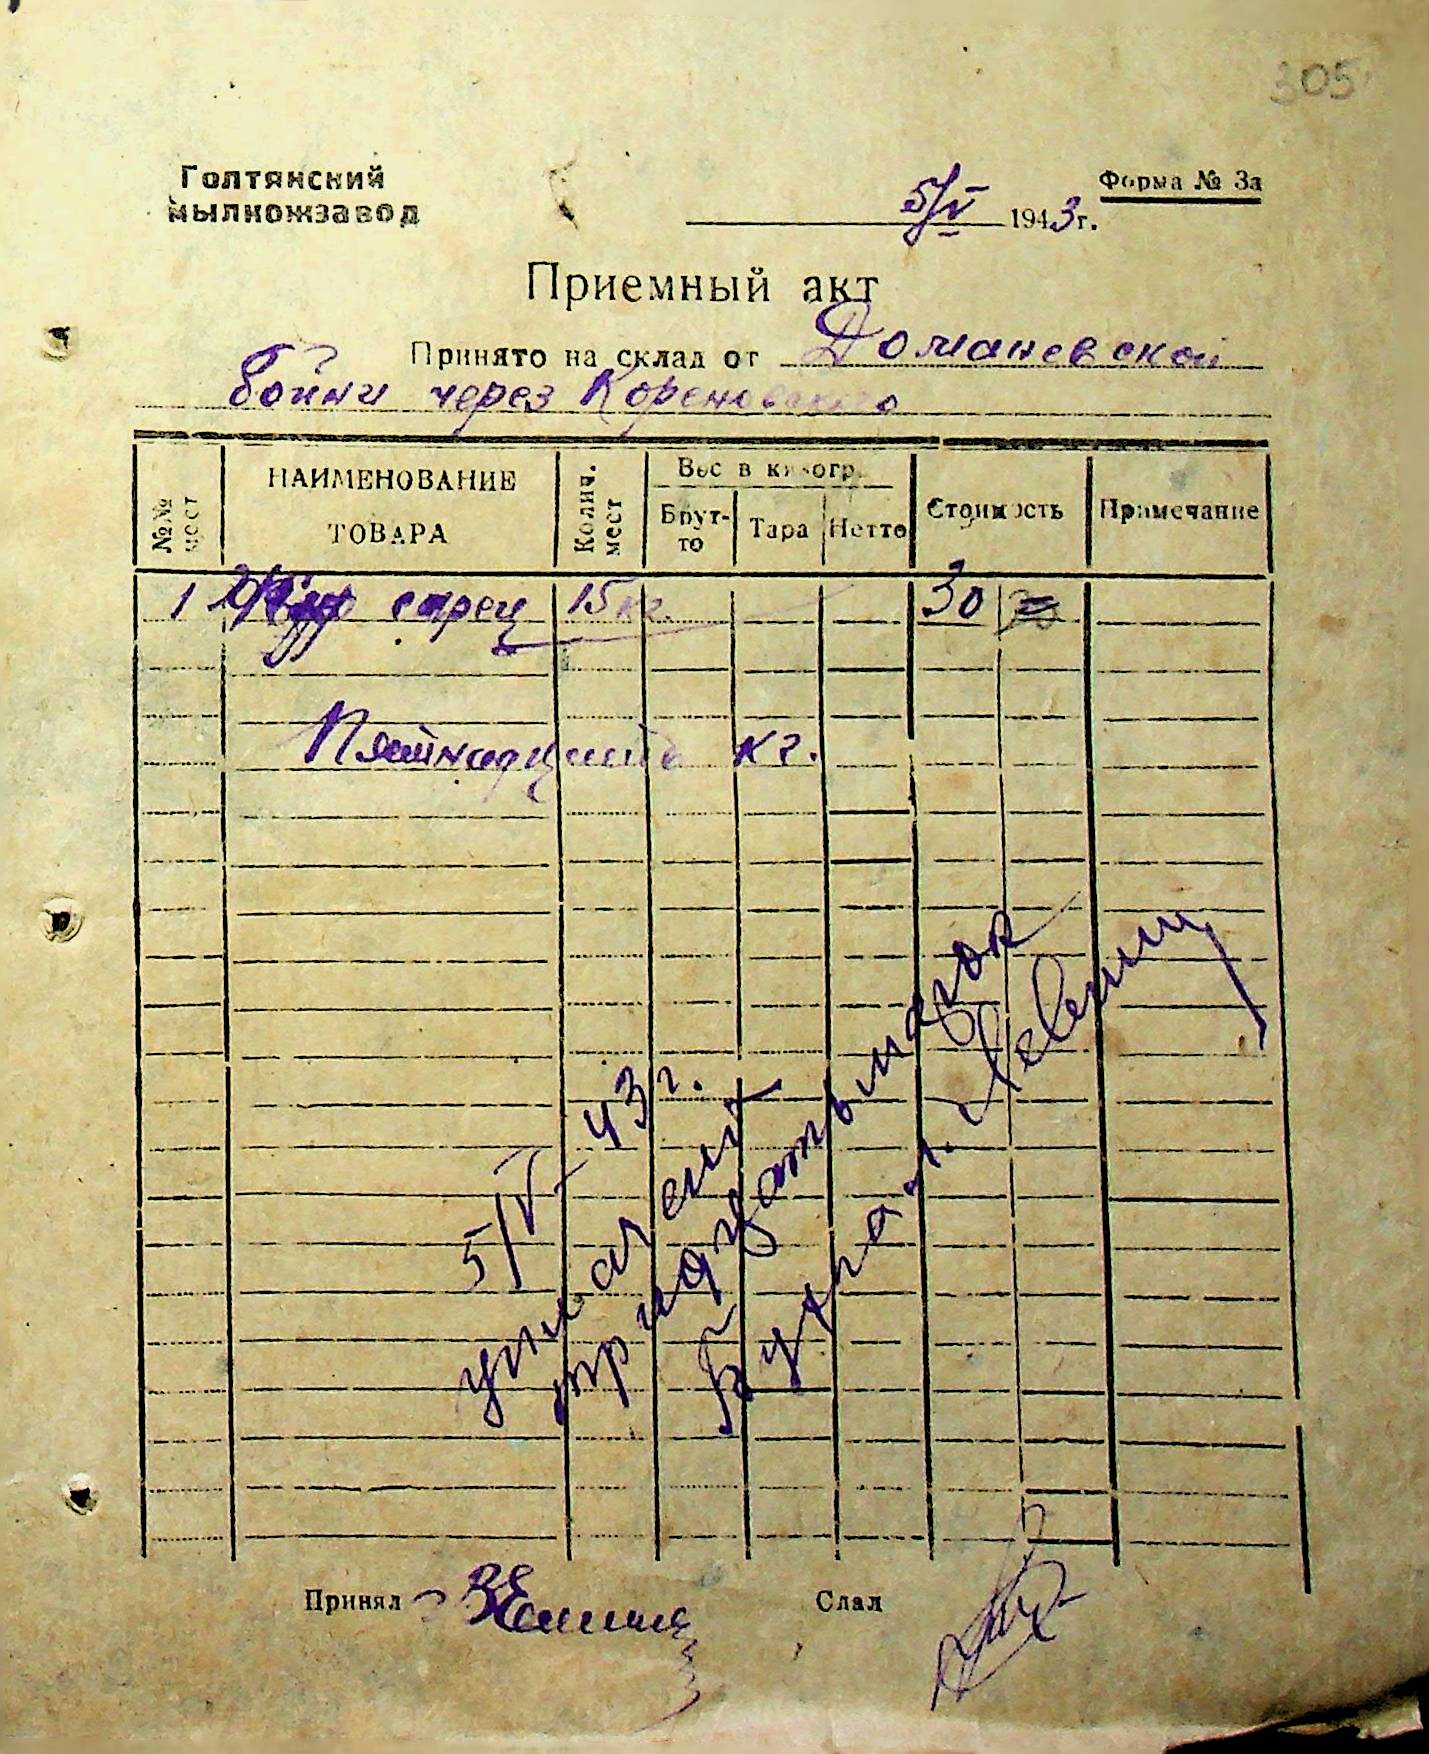 305
Голтянский
мылкожзавод
Форма № 3а
5/V 1943г.
Приемный акт
Принято на склад от Доманевской
бойни через Кореновского
№№ мест
НАИМЕНОВАНИЕ ТОВАРА
Колич. мест
Вес в килогр.
Брут-то
Тара
Нетто
Стоимость
Примечание
1 сырец 15 кг. 30
Пятнадцать кг.
5/V 43 г.
уплачено
тридцать марок
Бухгал.
Принял
Сдал